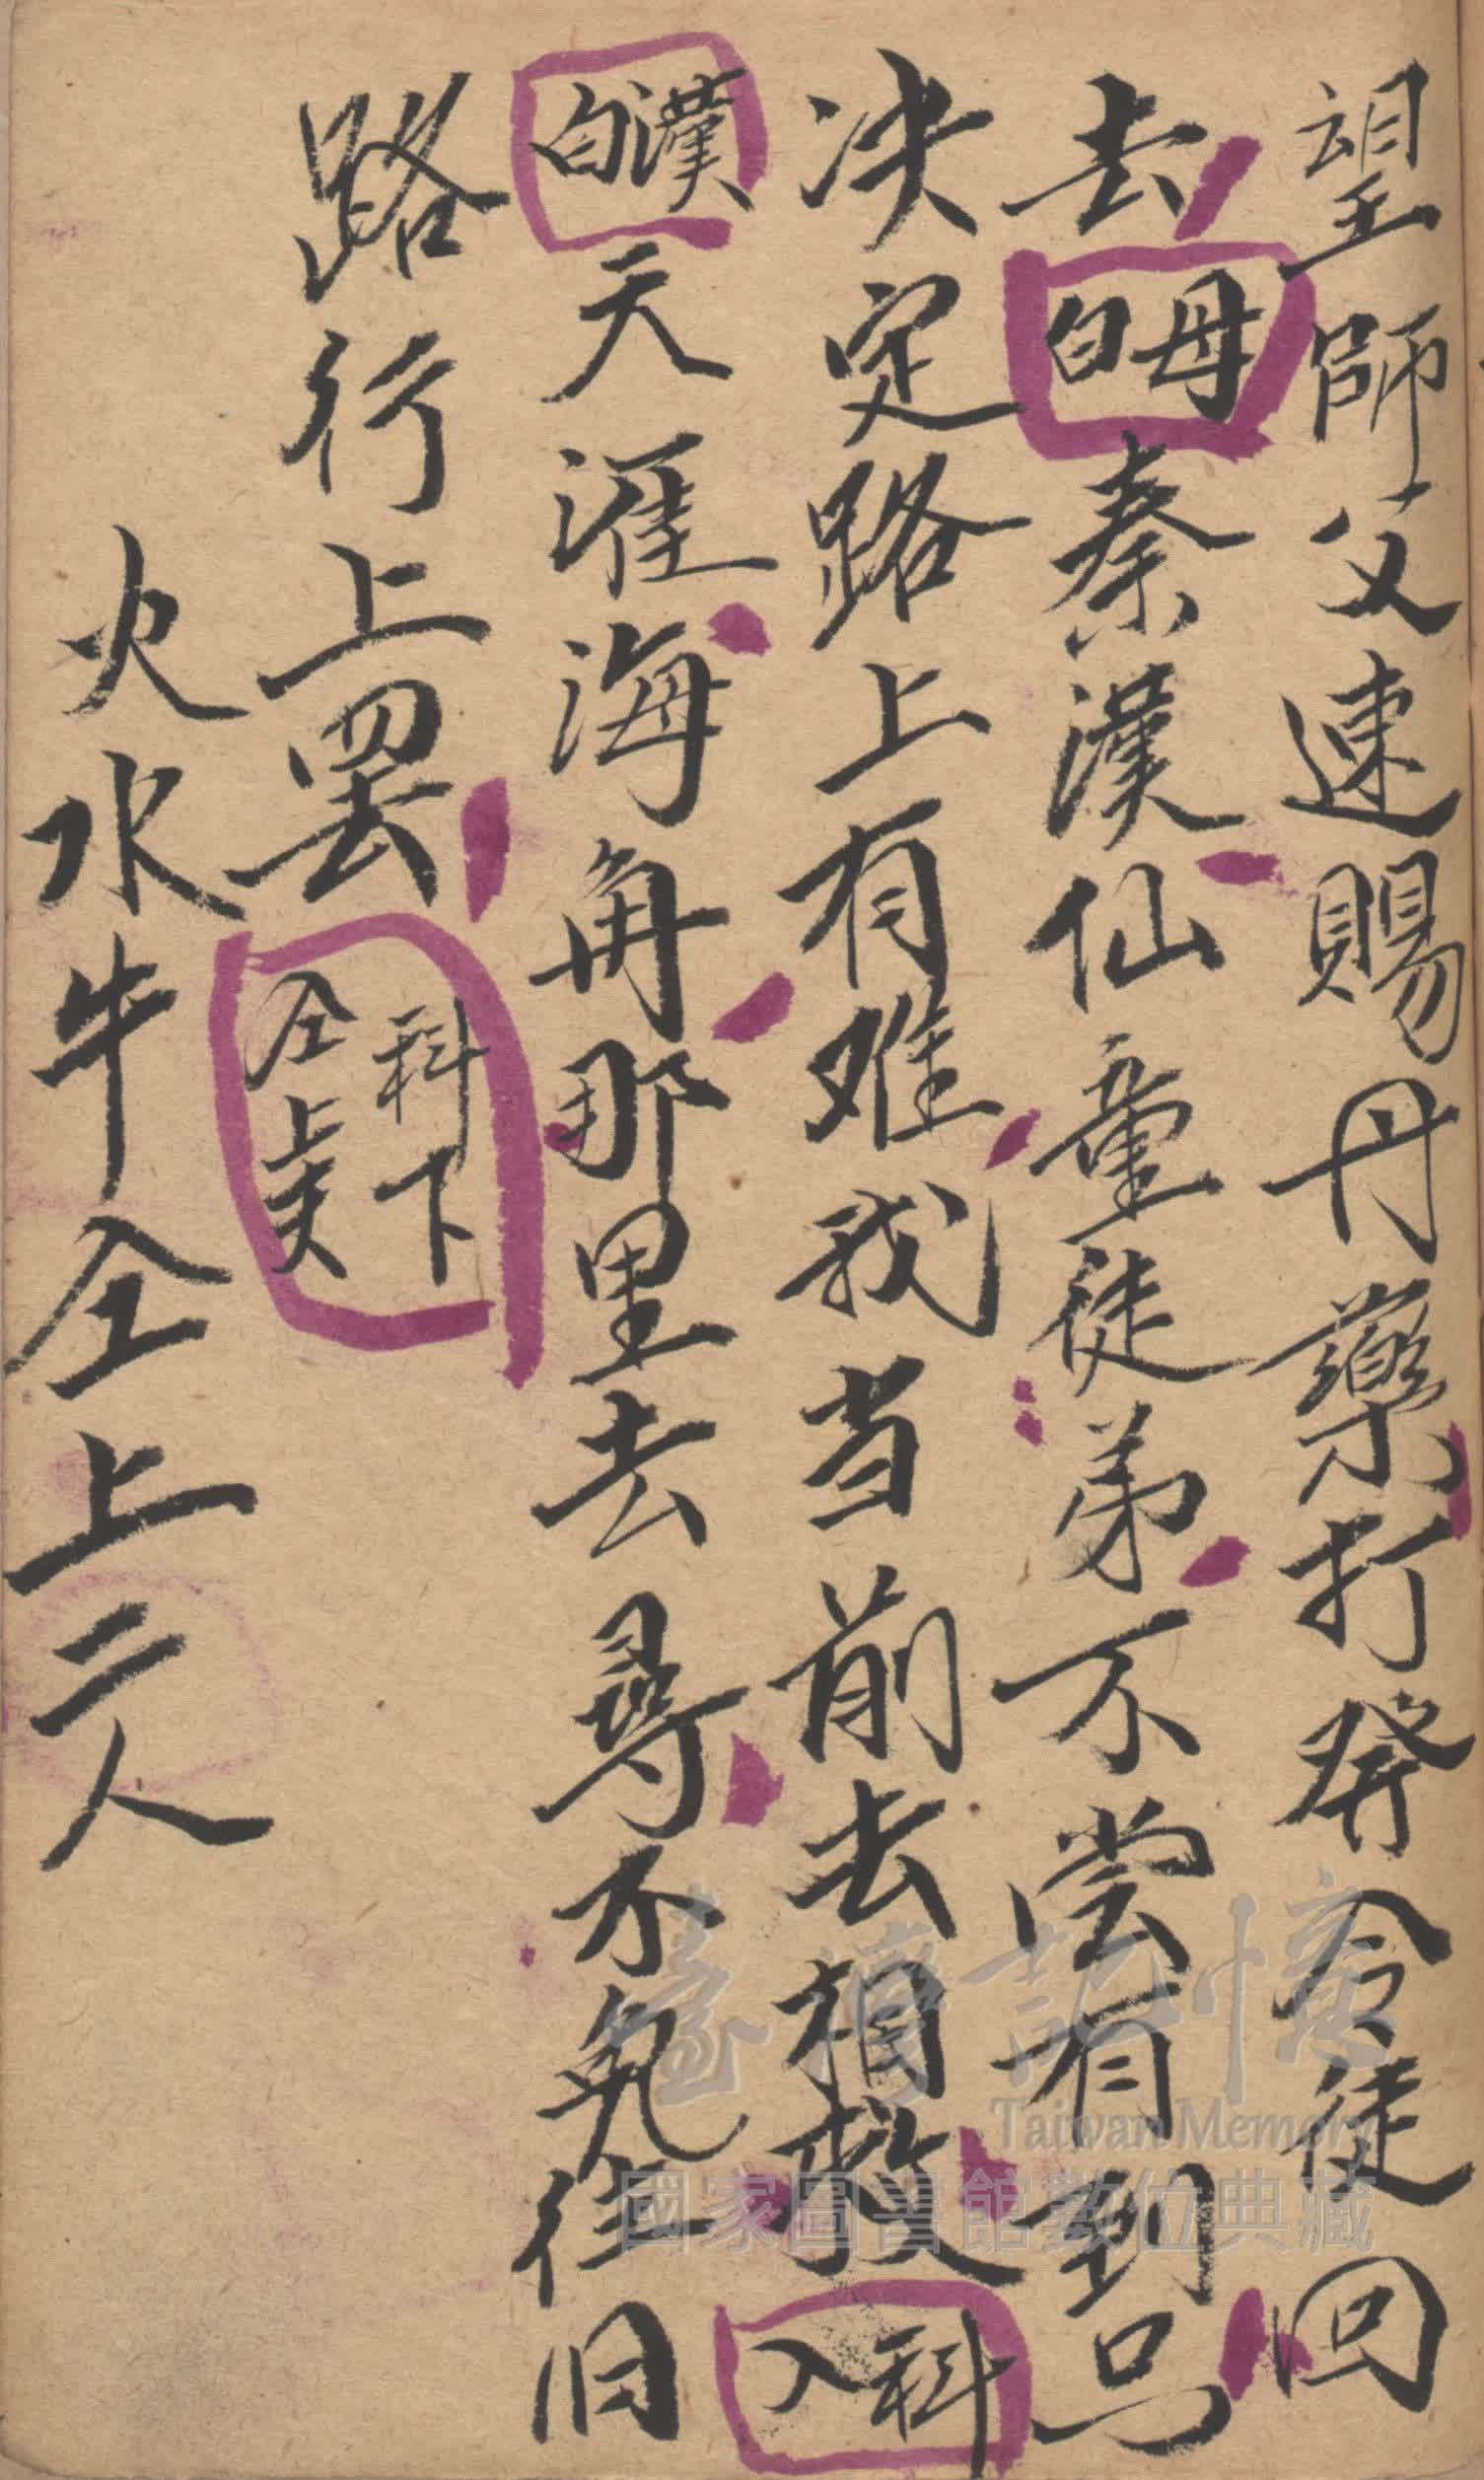 望師父速賜丹藥打發令徒回
去母白秦漢仙童徒弟不尝有到只
决定路上有难我当前去相救科入
漢白天涯海角那里去尋不免往旧
路行上罢科下仝上夫
火水牛仝上二人
臺灣記憶
Taiwan Memory
國家圖書館數位典藏